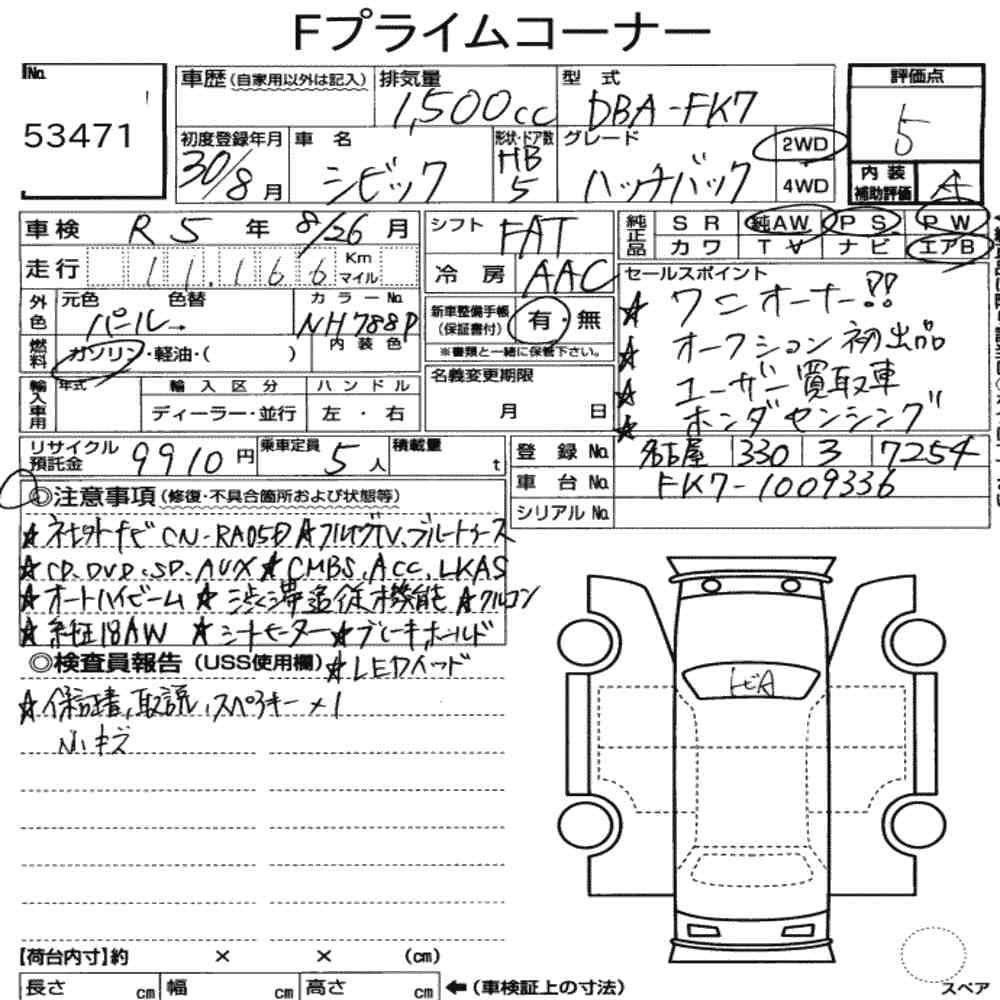 Fプライムコーナー
No.
53471
車歴(自家用以外は記入)
排気量
1,500cc
型式
DBA-FK7
評価点
5
初度登録年月
30/8月
車名
シビック
形状・ドア数
HB
5
グレード
ハッチバック
2WD
4WD
内装
補助評価
A
車検 R5年 8/26月
走行 11,166 Km
マイル
外色
元色
パール
色替
カラーNo.
NH788P
燃料
ガソリン・軽油・( )
内装色
輸入車用
年式
輸入区分
ディーラー・並行
ハンドル
左・右
シフト FAT
冷房 AAC
新車整備手帳
(保証書付)
有・無
※書類と一緒に保管下さい。
名義変更期限
月 日
純正品
SR 純AW PS PW
カワ TV ナビ エアB
セールスポイント
★ワンオーナー!!
★オークション初出品
★ユーザー買取車
★ホンダセンシング
リサイクル
預託金 9910円
乗車定員 5人
積載量 t
登録No. 名古屋 330 ろ 7254
車台No. FK7-1009336
シリアルNo.
◎注意事項(修復・不具合箇所および状態等)
★社外ナビ CN-RA05D★フルセグTV、ブルートゥース
★CD、DVD、SD、AUX★CMBS、ACC、LKAS
★オートハイビーム ★渋滞追従機能 ★クルコン
★純正18AW ★シートヒーター★ブレーキホールド
◎検査員報告(USS使用欄)★LEDライト
★保証書、取説、スペアキー×1
小キズ
トビA
【荷台内寸】約 × × (cm)
長さ cm 幅 cm 高さ cm ←(車検証上の寸法)
スペア